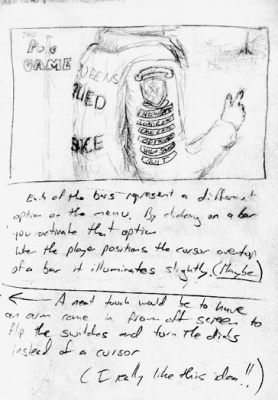 THE
Pole
GAME
QUEENS
LIED
ICE
NEW
LOAD GAME
SAVE GAME
OPTIONS
QUIT
Each of the bars represent a different
option on the menu. By clicking on a bar
you activate that option
When the player positions the cursor overtop
of a bar it illuminates slightly. (Maybe)
← A neat touch would be to have
an arm come in from off screen to
flip the switches and turn the dials
instead of a cursor
(I really like this idea!!)